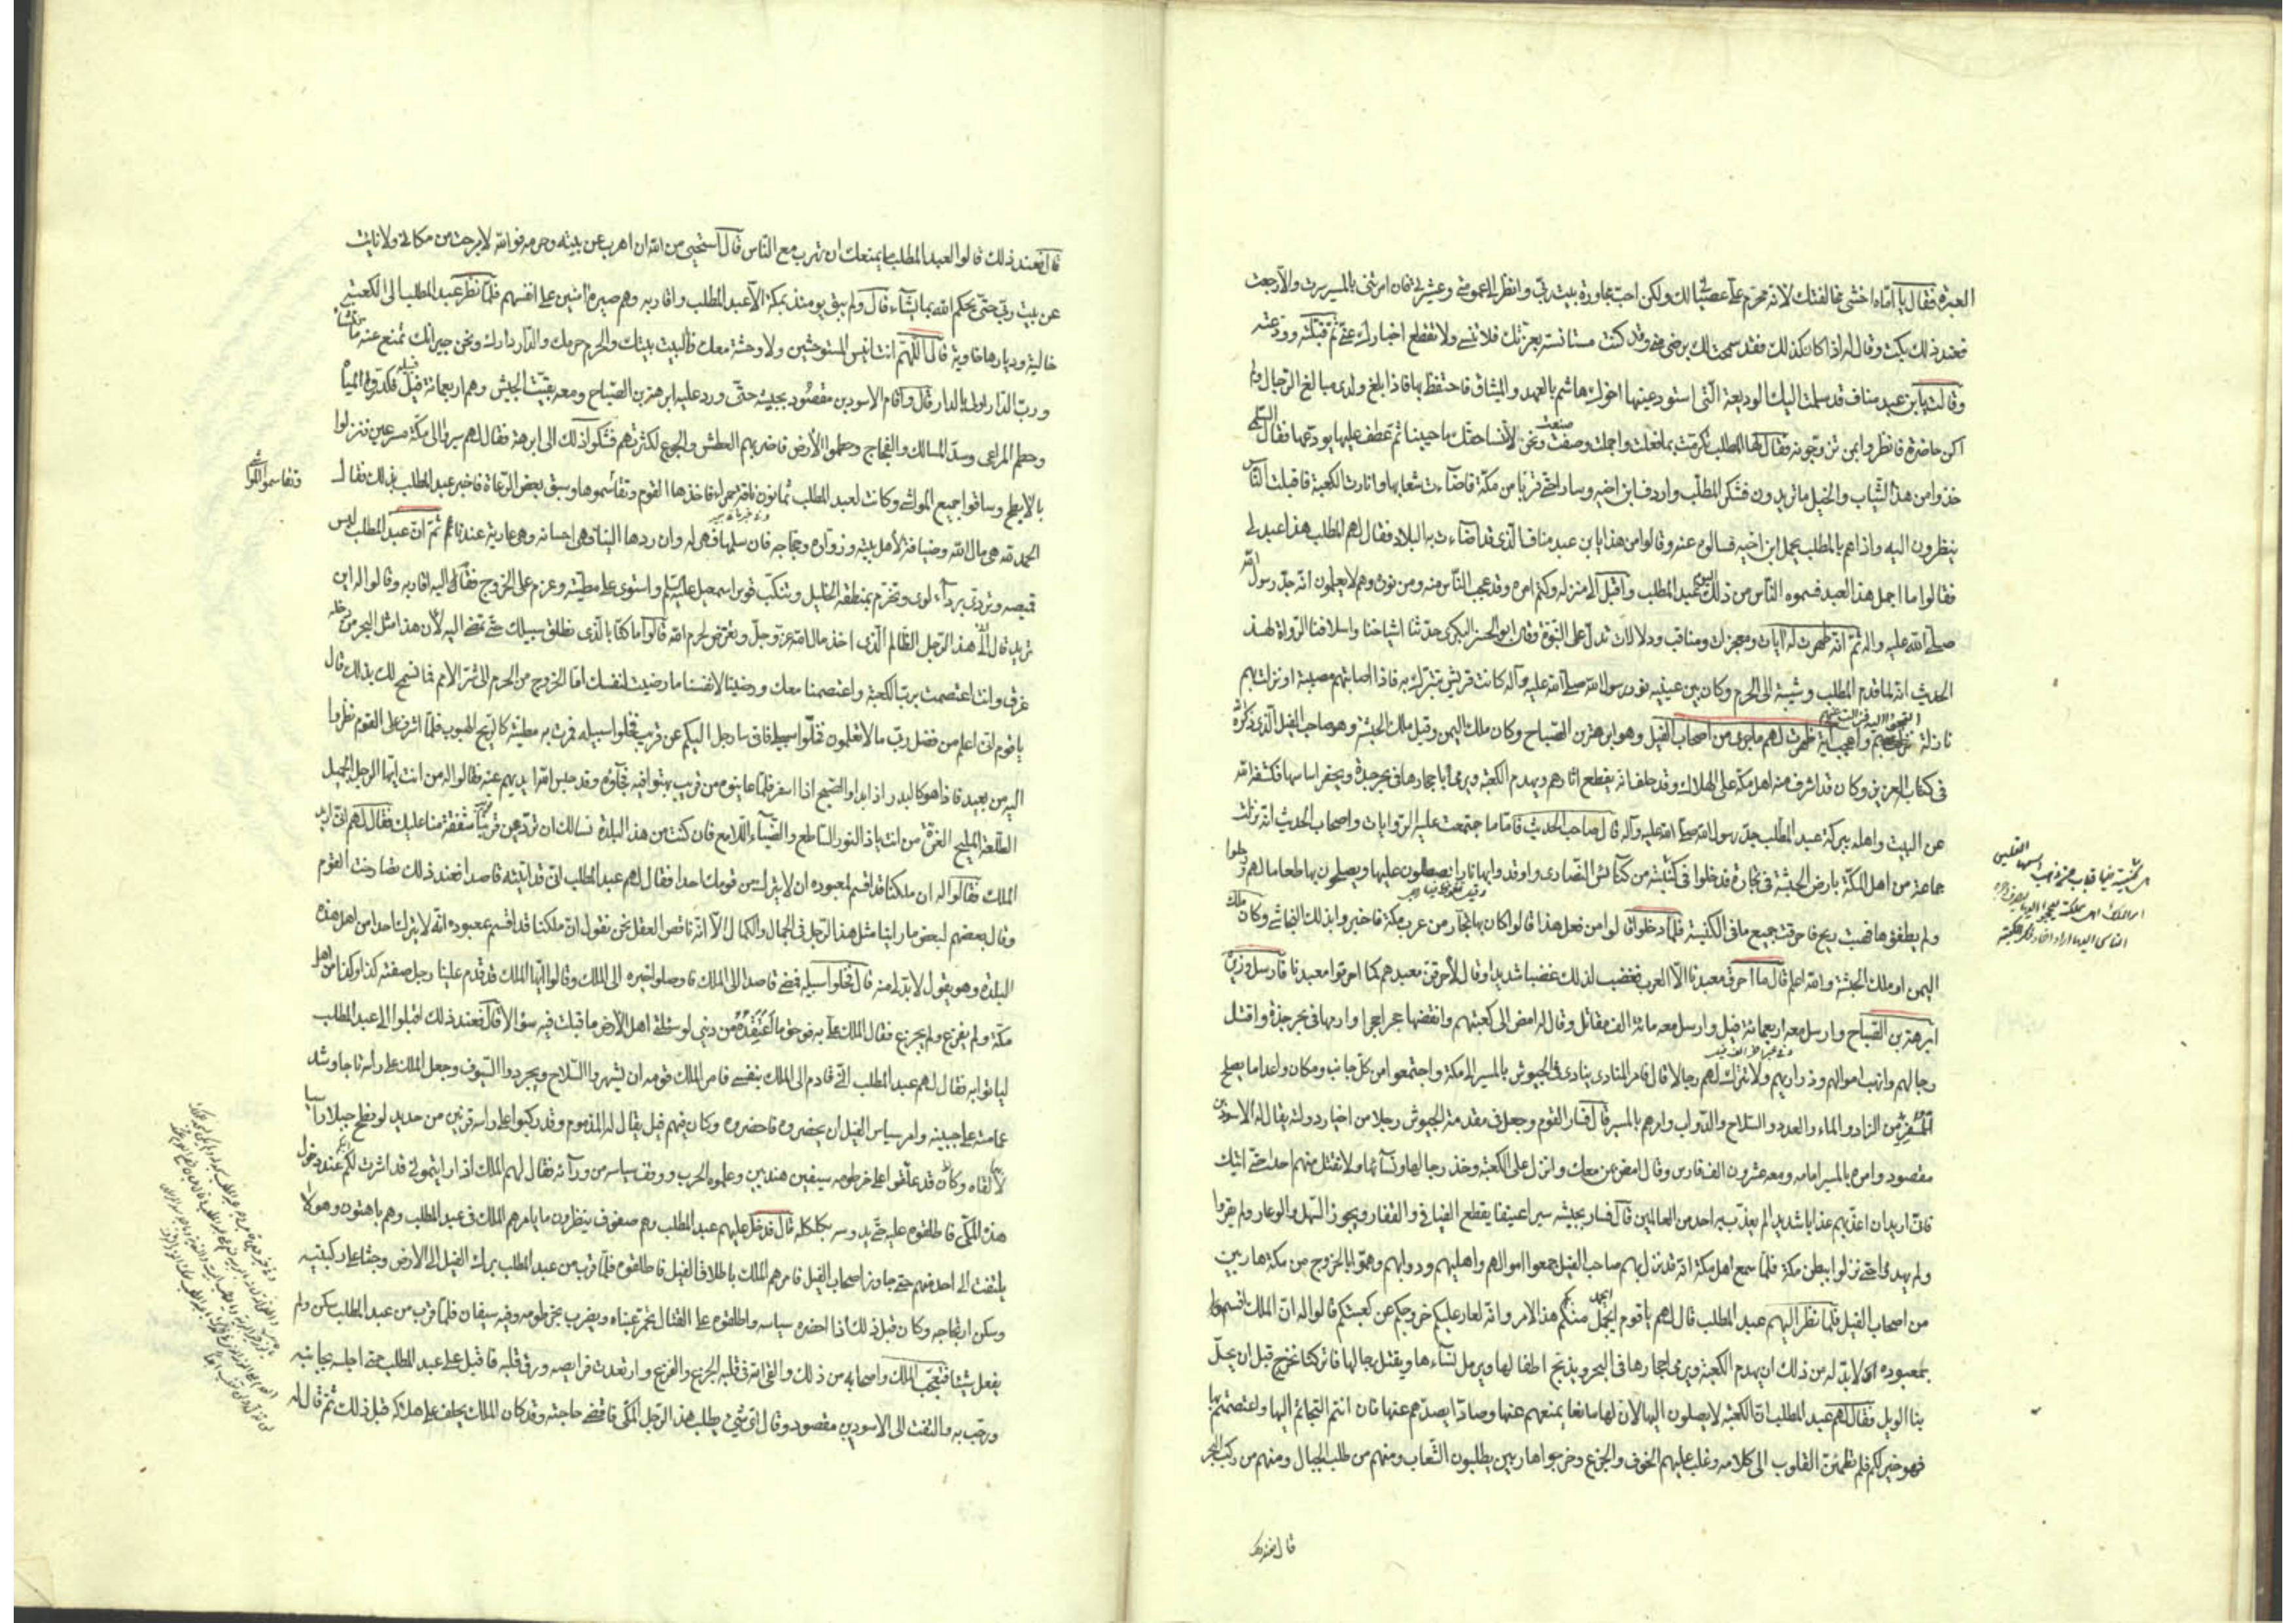 العبرة فقال يا اماه اخشى مخالفتك لانه محرم علي عصيانك ولكن احب مجاورة بيت ربي وانظر الى عمومتي وعشيرتي فان امرتني بالمسير سرت والا رجعت
فعند ذلك بكت وقالت له اذا كان كذلك فقد سمحت لك برضى مني وقد كنت مستانسة بغرتك فلا تنسني ولا تقطع اخبارك عني ثم قبلته وودعته
وقالت يا بن عبد مناف قد سلمت اليك الوديعة التي استودعنيها اخوك هاشم بالعهد والميثاق فاحتفظ بها فاذا بلغ ولدي مبالغ الرجال ولم
اكن حاضرة فانظروا بمن تزوجونه فقال لها المطلب تكرمت بما فعلت واجملت وصنعت ونحن لا ننسا حقك ما حيينا ثم عطف عليها يودعها فقالت سلمى
خذوا من هذا الثياب والخيل ما تريدون فشكر المطلب واردف ابن اخيه وسار حتى قربا من مكة فاضاءت شعابها وانارت الكعبة فاقبلت الناس
ينظرون اليه واذا هم بالمطلب يحمل ابن اخيه فسالوه عنه وقالوا من هذا يا بن عبد مناف الذي قد اضاءت به البلاد فقال لهم المطلب هذا عبد لي
فقالوا ما اجمل هذا العبد فسموه الناس من ذلك اليوم عبد المطلب واقبل الى منزله وكتم امره وقد عجب الناس منه ومن نوره وهم لا يعلمون انه جد رسول الله
صلى الله عليه واله ثم انه ظهرت له آيات ومعجزات ومناقب ودلالات تدل على النبوة وقال ابو الحسن البكري حدثنا اشياخنا واسلافنا الرواة لهذا
الحديث انه لما قدم المطلب وشيبة الى الحرم وكان بين عينيه نور رسول الله صلى الله عليه وآله كانت قريش تتبرك به فاذا اصابتهم مصيبة او نزلت بهم
نازلة واعجب آية ظهرت لهم ما جرى من اصحاب الفيل وهو ابرهة بن الصباح وكان ملك اليمن وقيل ملك الحبشة وهو صاحب الفيل الذي ذكره الله
في كتاب العزيز وكان قد اشرف منه اهل مكة على الهلاك وقد حلف انه يقطع اثارهم ويهدم الكعبة ويرمي احجارها في بحر جدة ويحفر اساسها فكشفه الله
عن البيت واهله ببركة عبد المطلب جد رسول الله صلى الله عليه وآله قال صاحب الحديث فاما ما اجتمعت عليه الروايات واصحاب الحديث انه نزلت
جماعة من اهل المكة بارض الحبشة في تجارة فدخلوا في كنيسة من كنائس النصارى واوقدوا بها نارا يصطلون عليها ويصلحون بها طعاما لهم ورحلوا
ولم يطفؤها فهبت ريح فاحرقت جميع ما في الكنيسة فلما دخلوا قالوا من فعل هذا قالوا كان بها تجار من عرب مكة فاخبروا بذلك النجاشي وكان ملك
اليمن او ملك الحبشة والله اعلم قال ما احرق معبدنا الا العرب فغضب لذلك غضبا شديدا وقال لاحرقن معبدهم كما احرقوا معبدنا فارسل وزيره
ابرهة بن الصباح وارسل معه اربعمائة فيل وارسل معه مائة الف مقاتل وقال له امض الى كعبتهم وانقضها حجرا حجرا وارمها في بحر جدة واقتل
رجالهم وانهب اموالهم وذراريهم ولا تترك لهم رجالا قال فامر المنادي ينادي في الجيوش بالمسير الى مكة واجتمعوا من كل جانب ومكان واعد ما يصلح
للسفر من الزاد والماء والعدد والسلاح والدواب وامرهم بالمسير قال فسار القوم وجعل في مقدمة الجيوش رجلا من اخيار دولته يقال له الاسود بن
مقصود وامره بالمسير امامه ومعه عشرون الف فارس وقال امض بمن معك وانزل على الكعبة وخذ رجالها ونساءها ولا تقتل منهم احدا حتى اتيك
فاني اريد ان اعذبهم عذابا شديدا لم يعذب به احد من العالمين قال فسار بجيشه سيرا عنيفا يقطع الفيافي والقفار ويجوز السهل والوعار ولم يقروا
ولم يهدوا حتى نزلوا ببطن مكة فلما سمع اهل مكة انه قد نزل بهم صاحب الفيل جمعوا اموالهم واهليهم ودوابهم وهموا بالخروج من مكة هاربين
من اصحاب الفيل فلما نظر اليهم عبد المطلب قال لهم يا قوم ايجمل منكم هذا الامر وانه لعار عليكم خروجكم عن كعبتكم قالوا له ان الملك اقسم
بمعبوده انه لا بد له من ذلك ان يهدم الكعبة ويرمي احجارها في البحر ويذبح اطفالها ويرمل نساءها ويقتل رجالها فاتركنا نخرج قبل ان يحل
بنا الويل فقال لهم عبد المطلب ان الكعبة لا يصلون اليها لان لها مانعا يمنعهم عنها وصادا يصدهم عنها فان انتم التجأتم اليها واعتصمتم بها
فهو خير لكم فلم تطمئن القلوب الى كلامه وغلب عليهم الخوف والجزع وخرجوا هاربين يطلبون الشعاب ومنهم من طلب الجبال ومنهم من ركب البحر
قال فعند ذلك
قال فعند ذلك قالوا لعبد المطلب ما يمنعك ان تهرب مع الناس قال استحيي من الله ان اهرب عن بيته وحرمه فوالله لا برحت من مكاني ولا نايت
عن بيت ربي حتى يحكم الله بما يشاء قال ولم يبق يومئذ بمكة الا عبد المطلب واقاربه وهم غير آمنين على انفسهم فلما نظر عبد المطلب الى الكعبة
خالية وديارها خاوية قال اللهم انت انيس المستوحشين ولا وحشة معك فالبيت بيتك والحرم حرمك والدار دارك ونحن جيرانك تمنع عنه ما تشاء
ورب الدار اولى بالدار قال واقام الاسود بن مقصود بجيشه حتى ورد عليه ابرهة بن الصباح ومعه بقية الجيش وهم اربعمائة فيل فكدروا المياه
وحطم المراعي وسد المسالك والفجاج وحطموا الأرض فاضر بهم العطش والجوع لكثرتهم فشكوا ذلك الى ابرهة فقال لهم سيروا الى مكة مسرعين فنزلوا
بالابطح وساقوا جميع المواشي وكانت لعبد المطلب ثمانون ناقة حمراء فاخذها القوم وتقاسموها وسبق بعض الرعاة فاخبر عبد المطلب بذلك فقال
وتقاسموا
الحمد لله هي مال الله وضيافة لأهل بيته وزواره وحجاجه فان سلمها فهي له وان ردها الينا فهي احسانه وهي عارية عندنا ثم ان عبد المطلب لبس
قميصه وتردى برداء لوى وتحزم بمنطقة الخليل وتنكب قوس اسمعيل عليه السلم واستوى على مطيته وعزم على الخروج فقال اليه اقاربه وقالوا له اين
تريد قال الى هذا الرجل الظالم الذي اخذ مال الله عز وجل وتعرض لحرم الله قالوا ما كنا بالذي نطلق سبيلك حتى تمضي اليه لأن هذا مثل البحر من دخله
غرق وانت اعتصمت برب الكعبة واعتصمنا معك ورضينا لانفسنا ما رضيت لنفسك اما الخروج من الحرم الى شر الامم فما نسمح لك بذلك قال
يا قوم اني اعلم من فضل ربي ما لا تعلمون فخلوا سبيلي فاني سارجع اليكم عن قريب فخلوا سبيله فمرت به مطيته كالريح الهبوب فلما اشرف على القوم نظروا
اليه من بعيد فاذا هو كالبدر اذا بدا والصبح اذا اسفر فلما عاينوه من قريب بهتوا فيه فجاؤه وقد حبس الله ايديهم عنه فقالوا له من انت ايها الرجل الجميل
الطلعة المليح الغرة من انت يا ذا النور الساطع والضياء اللامع فان كنت من هذه البلدة نسالك ان ترجع عن قربنا شفقة منا عليك فقال لهم اني اريد
الملك فقالوا له ان ملكنا قد اقسم بمعبوده ان لا يترك من قومك احدا فقال لهم عبد المطلب اني قد اتيته قاصدا فعند ذلك تصارخت القوم
وقال بعضهم لبعض ما راينا مثل هذا الرجل في الجمال والكمال الا انه ناقص العقل نحن نقول ان ملكنا قد اقسم بمعبوده انه لا يترك احدا من اهل هذه
البلدة وهو يقول لا بد لي منه قال فخلوا سبيله فمضى قاصدا الى الملك فاوصلوا خبره الى الملك وقالوا ايها الملك قد قدم علينا رجل صفته كذا وكذا من اهل
مكة ولم يفزع ولم يجزع فقال الملك علي به فوحق ما اعتقده من ديني لو سئلني اهل الأرض ما قبلت فيه سؤالا قال فعند ذلك اقبلوا الى عبد المطلب
لياتوا به فقال لهم عبد المطلب اني قادم الى الملك بنفسي فامر الملك قومه ان يشهروا السلاح ويجردوا السيوف وجعل الملك على راسه تاجا وشد
عمامته على جبينه وامر سياس الفيل ان يحضروه فاحضروه وكان فيهم فيل يقال له المذموم وقد ركبوا على راسه قرنين من حديد لو نطح جبلا راسيا
لالقاه وكان قد علقوا على خرطومه سيفين هنديين وعلموه الحرب ووقف سياسه من ورائه فقال لهم الملك اذا رايتموني قد اشرت لكم عند دخول
هذا المكي فاطلقوه عليه حتى يدوسه بكلكله قال فدخل عليهم عبد المطلب وهم صفوف ينظرون ما يامرهم الملك في عبد المطلب وهم باهتون وهو لا
يلتفت الى احد منهم حتى جاوز اصحاب الفيل فامرهم الملك باطلاق الفيل فاطلقوه فلما قرب من عبد المطلب برك الفيل الى الارض وجثا على ركبتيه
وسكن ارتجاجه وكان قبل ذلك اذا احضره سياسه واطلقوه على القتال تحمر عيناه ويضرب بخرطومه وفيه سيفان فلما قرب من عبد المطلب سكن ولم
يفعل شيئا فتعجب الملك واصحابه من ذلك والقى الله في قلبه الجزع والفزع وارتعدت فرايصه ورق قلبه فاقبل على عبد المطلب حتى اجلسه بجانبه
ورحب به والتفت الى الاسود بن مقصود وقال اي شيء يطلب هذا الرجل المكي فاقضي حاجته وقد كان الملك يحلف على هلاكه قبل ذلك ثم قال له